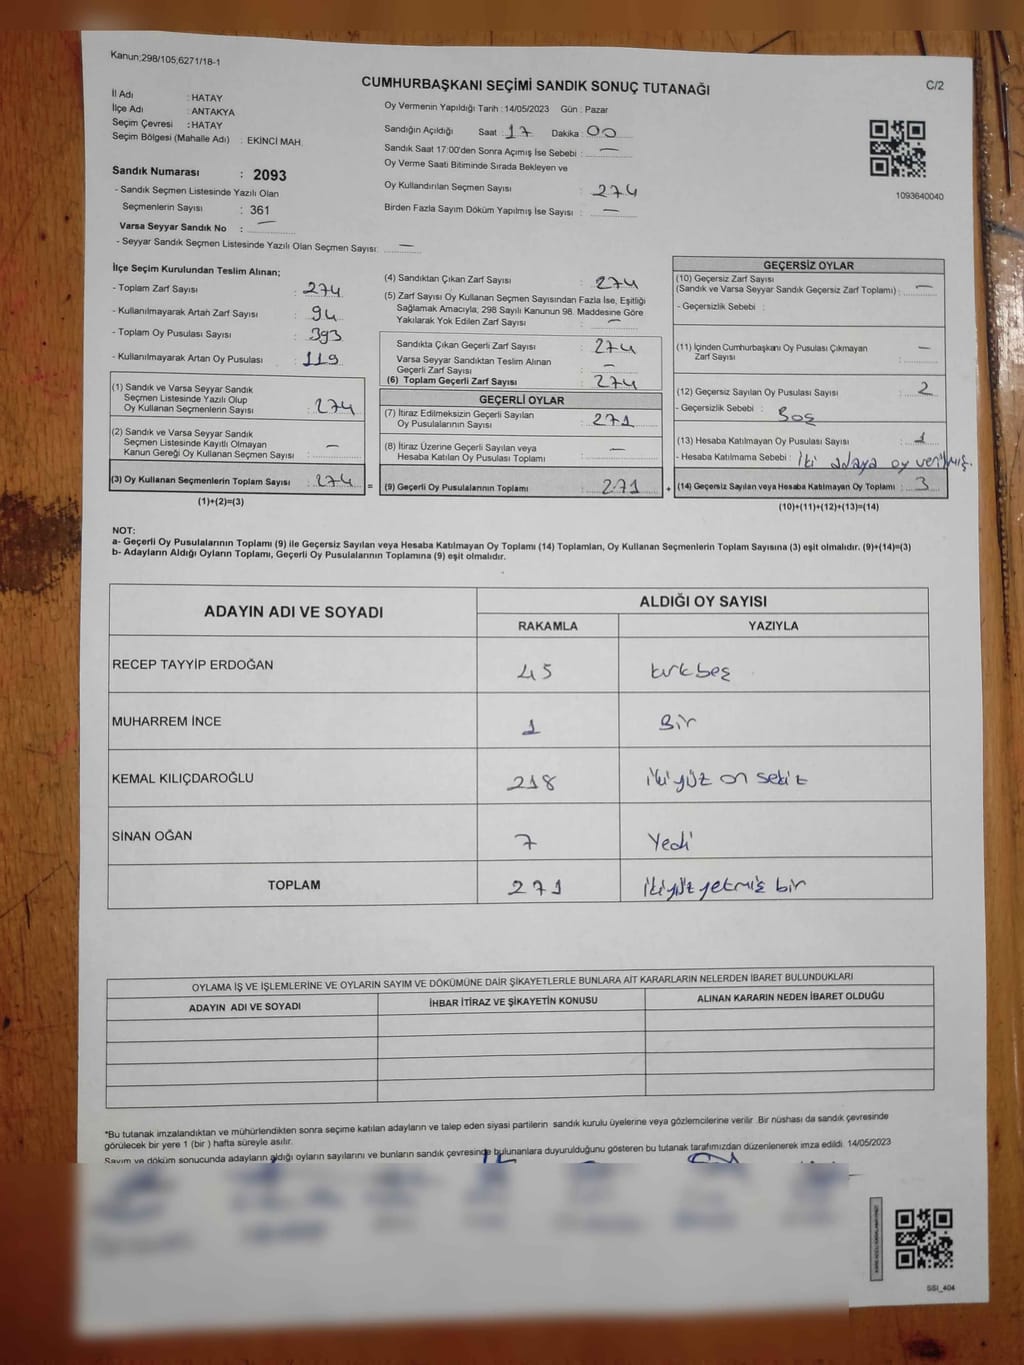 Kanun;298/105,6271/18-1
CUMHURBAŞKANI SEÇİMİ SANDIK SONUÇ TUTANAĞI
C/2
İl Adı : HATAY
İlçe Adı : ANTAKYA
Seçim Çevresi : HATAY
Seçim Bölgesi (Mahalle Adı) : EKİNCİ MAH.
Oy Vermenin Yapıldığı Tarih : 14/05/2023 Gün : Pazar
Sandığın Açıldığı Saat : 17 Dakika : 00
Sandık Saat 17:00'den Sonra Açımış İse Sebebi : —
Oy Verme Saati Bitiminde Sırada Bekleyen ve
Oy Kullandırılan Seçmen Sayısı : 274
Birden Fazla Sayım Döküm Yapılmış İse Sayısı : —
1093640040
Sandık Numarası : 2093
- Sandık Seçmen Listesinde Yazılı Olan
Seçmenlerin Sayısı : 361
Varsa Seyyar Sandık No : —
- Seyyar Sandık Seçmen Listesinde Yazılı Olan Seçmen Sayısı: —
İlçe Seçim Kurulundan Teslim Alınan;
- Toplam Zarf Sayısı : 274
- Kullanılmayarak Artan Zarf Sayısı : 94
- Toplam Oy Pusulası Sayısı : 393
- Kullanılmayarak Artan Oy Pusulası : 119
(1) Sandık ve Varsa Seyyar Sandık
Seçmen Listesinde Yazılı Olup
Oy Kullanan Seçmenlerin Sayısı : 274
(2) Sandık ve Varsa Seyyar Sandık
Seçmen Listesinde Kayıtlı Olmayan
Kanun Gereği Oy Kullanan Seçmen Sayısı : —
(3) Oy Kullanan Seçmenlerin Toplam Sayısı : 274 =
(1)+(2)=(3)
(4) Sandıktan Çıkan Zarf Sayısı : 274
(5) Zarf Sayısı Oy Kullanan Seçmen Sayısından Fazla İse, Eşitliği
Sağlamak Amacıyla; 298 Sayılı Kanunun 98. Maddesine Göre
Yakılarak Yok Edilen Zarf Sayısı : —
Sandıkta Çıkan Geçerli Zarf Sayısı : 274
Varsa Seyyar Sandıktan Teslim Alınan
Geçerli Zarf Sayısı : —
(6) Toplam Geçerli Zarf Sayısı : 274
GEÇERLİ OYLAR
(7) İtiraz Edilmeksizin Geçerli Sayılan
Oy Pusulasının Sayısı : 271
(8) İtiraz Üzerine Geçerli Sayılan veya
Hesaba Katılan Oy Pusulası Toplamı : —
(9) Geçerli Oy Pusulalarının Toplamı : 271 +
GEÇERSİZ OYLAR
(10) Geçersiz Zarf Sayısı
(Sandık ve Varsa Seyyar Sandık Geçersiz Zarf Toplamı) : —
- Geçersizlik Sebebi :
(11) İçinden Cumhurbaşkanı Oy Pusulası Çıkmayan
Zarf Sayısı : —
(12) Geçersiz Sayılan Oy Pusulası Sayısı : 2
- Geçersizlik Sebebi : Boş
(13) Hesaba Katılmayan Oy Pusulası Sayısı : 1
- Hesaba Katılmama Sebebi : İki adaya oy verilmiş.
(14) Geçersiz Sayılan veya Hesaba Katılmayan Oy Toplamı : 3
(10)+(11)+(12)+(13)=(14)
NOT:
a- Geçerli Oy Pusulalarının Toplamı (9) ile Geçersiz Sayılan veya Hesaba Katılmayan Oy Toplamı (14) Toplamları, Oy Kullanan Seçmenlerin Toplam Sayısına (3) eşit olmalıdır. (9)+(14)=(3)
b- Adayların Aldığı Oyların Toplamı, Geçerli Oy Pusulalarının Toplamına (9) eşit olmalıdır.
ADAYIN ADI VE SOYADI
ALDIĞI OY SAYISI
RAKAMLA YAZIYLA
RECEP TAYYİP ERDOĞAN 45 kırkbeş
MUHARREM İNCE 1 Bir
KEMAL KILIÇDAROĞLU 218 ikiyüz on sekiz
SİNAN OĞAN 7 Yedi
TOPLAM 271 ikiyüz yetmiş bir
OYLAMA İŞ VE İŞLEMLERİNE VE OYLARIN SAYIM VE DÖKÜMÜNE DAİR ŞİKAYETLERLE BUNLARA AİT KARARLARIN NELERDEN İBARET BULUNDUKLARI
ADAYIN ADI VE SOYADI İHBAR İTİRAZ VE ŞİKAYETİN KONUSU ALINAN KARARIN NEDEN İBARET OLDUĞU
*Bu tutanak imzalandıktan ve mühürlendikten sonra seçime katılan adayların ve talep eden siyasi partilerin sandık kurulu üyelerine veya gözlemcilerine verilir. Bir nüshası da sandık çevresinde
görülecek bir yere 1 (bir ) hafta süreyle asılır.
Sayım ve döküm sonucunda adayların aldığı oyların sayılarını ve bunların sandık çevresinde bulunanlara duyurulduğunu gösteren bu tutanak tarafımızdan düzenlenerek imza edildi. 14/05/2023
SSI_404